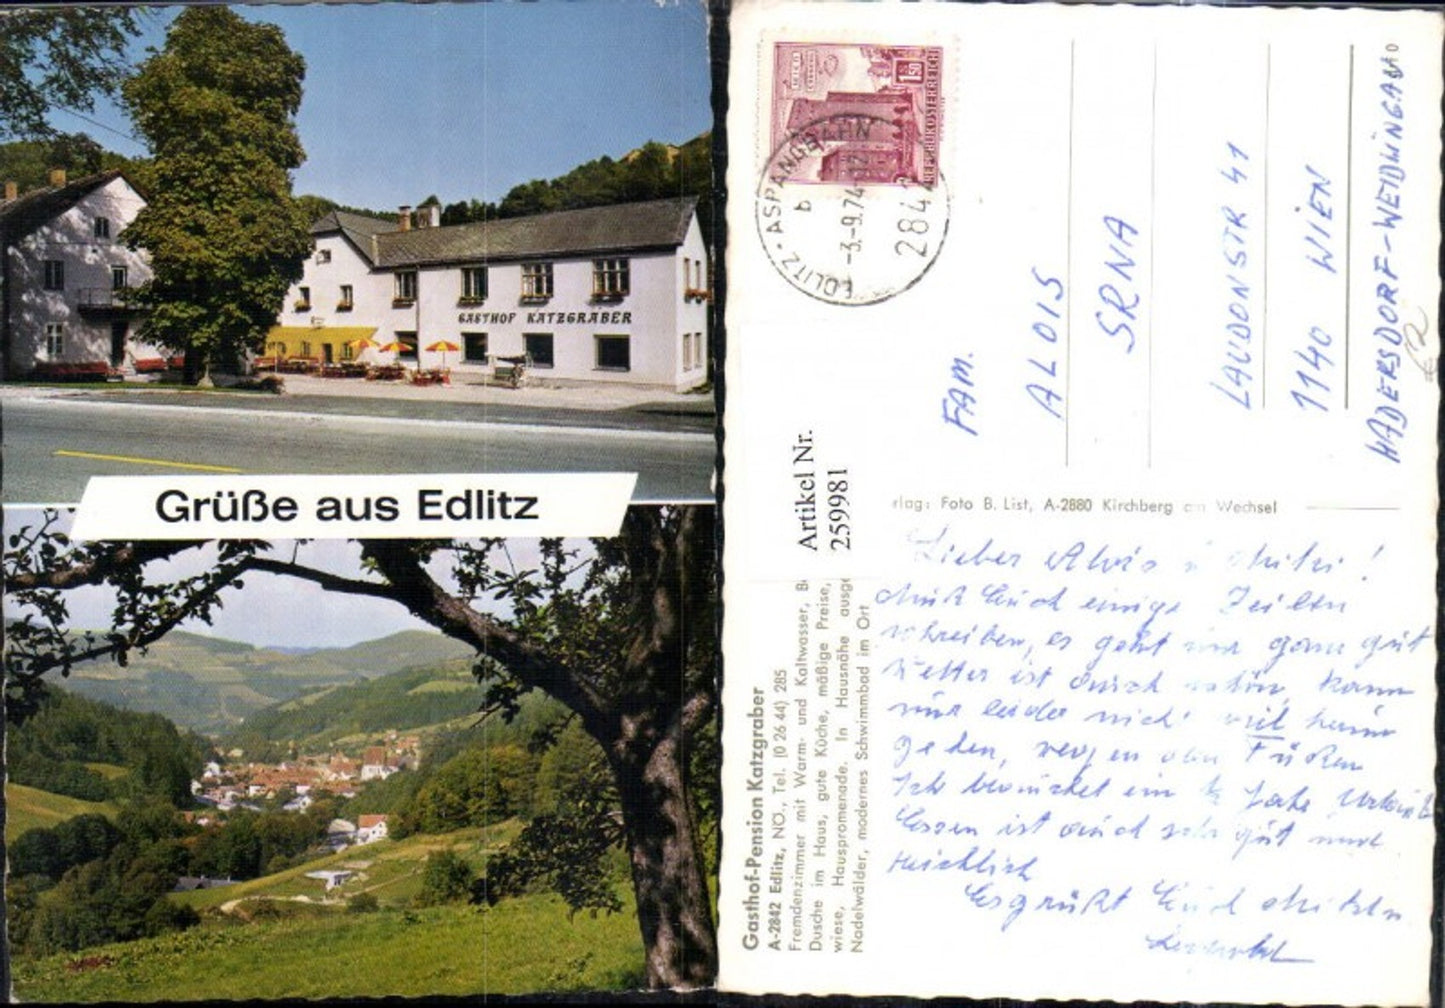 GASTHOF KATZGRABER
Grüße aus Edlitz
1.50
REPUBLIK ÖSTERREICH
EDLITZ · ASPANGBAHN
b
-3.-9.74
2842
FAM.
ALOIS
SRNA
LAUDONSTR 41
1140 WIEN
HADERSDORF-WEIDLINGAU
Artikel Nr.
259981
rlag: Foto B. List, A-2880 Kirchberg am Wechsel
Gasthof-Pension Katzgraber
A-2842 Edlitz, NÖ., Tel. (0 26 44) 285
Fremdenzimmer mit Warm- und Kaltwasser, B
Dusche im Haus, gute Küche, mäßige Preise,
wiese, Hauspromenade. In Hausnähe ausge
Nadelwälder, modernes Schwimmbad im Ort
Lieber Alois
Euch einige Zeilen
schreiben, es geht mir ganz gut
Wetter ist auch schön, kann
nur leider nicht viel
Füßen
Ich ein 1/2 Jahr
Essen ist auch sehr gut und
reichlich
Es grüßt Euch